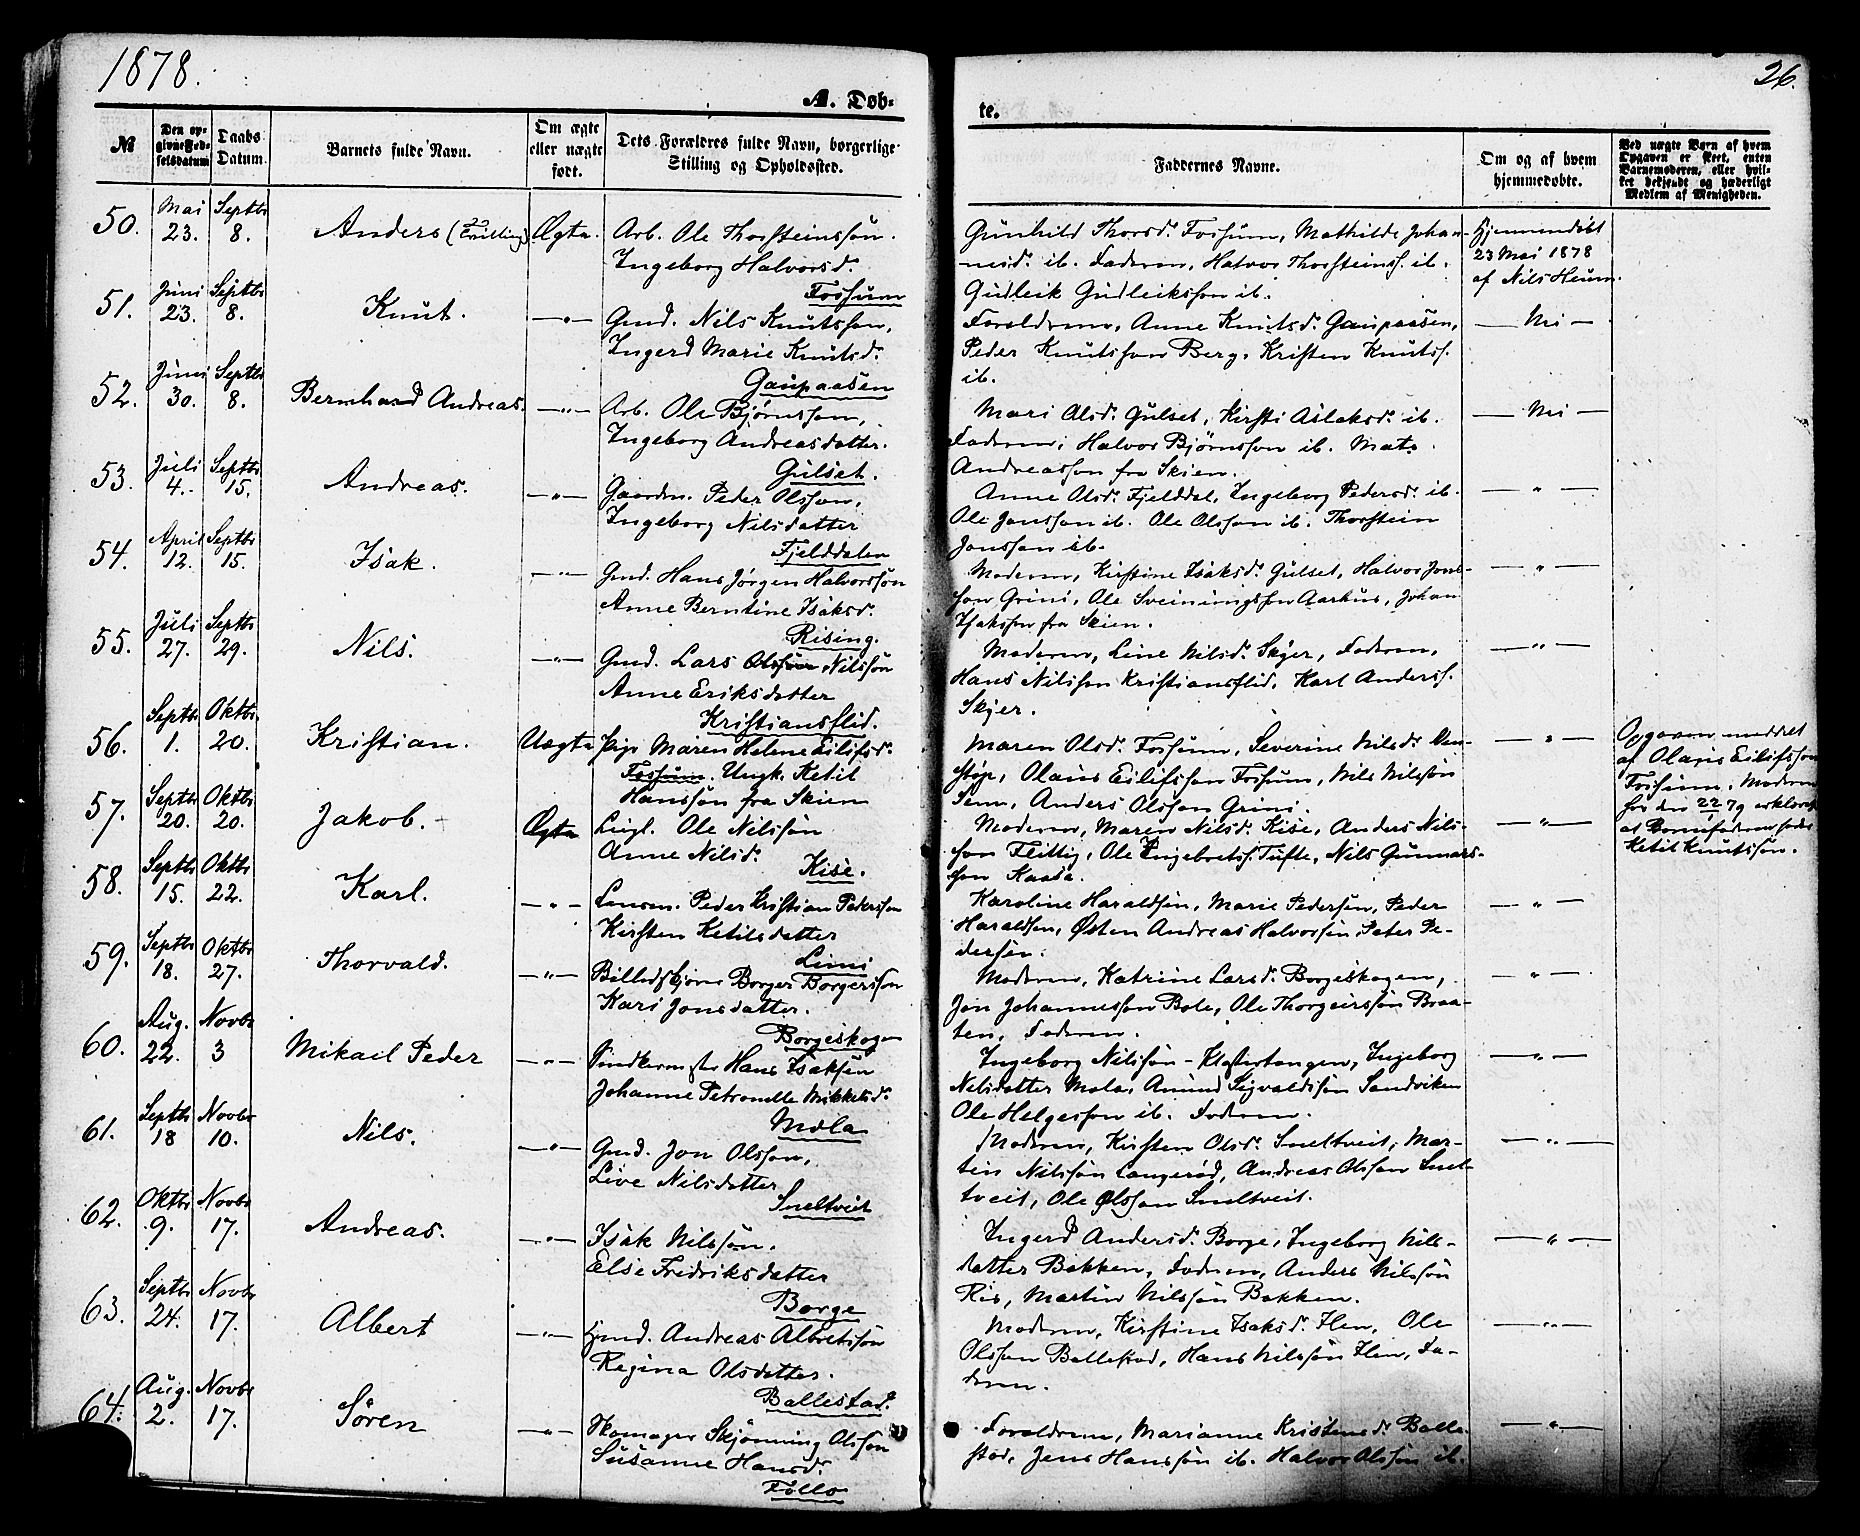 1878.
26.
A. Døb-
te.
№
Den opgivne Fødselsdatum
Daabs Datum.
Barnets fulde Navn.
Om ægte eller uægte født.
Dets Forældres fulde Navn, borgerlige Stilling og Opholdssted.
Faddernes Navne.
Om og af hvem hjemmedøbt.
Ved uægte Børn af hvem Opgaven er skeet, enten Barnemoderen, eller hvilket bekjendt og hæderligt Medlem af Menigheden.
50. Mai 23. Septbr 8. Anders (Tvilling) Ægte. Arb. Ole Thorsteinssøn.
Ingeborg Halvorsd.
Fossum
Gunhild Thorsd. Fossum, Mathilde Johan-
nesd. ib. Faderen, Halvor Thorsteins. ib.
Gudleik Gudleiksson ib.
Hjemmendøbt
23 Mai 1878
af Nils Heum.
51. Juni 23. Septbr 8. Knut. —"— Gmd. Nils Knutsson,
Ingerd Marie Knutsd.
Gaupaasen
Forældrene, Anne Knutsd. Gaupaasen,
Peder Knutsson Berg, Kristen Knuts.
ib.
— Nei —
52. Juni 30. Septbr 8. Bernhard Andreas. —"— Arb. Ole Bjørnsson,
Ingeborg Andreasdatter.
Gulset.
Mari Olsd. Gulset, Kirsti Aslaksd. ib.
Faderen, Halvor Bjørnsson ib. Mats
Andreasson fra Skien.
— Nei —
53. Juli 4. Septbr 15. Andreas. —"— Gaardm. Peder Olsson,
Ingeborg Nilsdatter
Fjelddalen
Anne Olsd. Fjelddal, Ingeborg Pedersd. ib.
Ole Jonsson ib. Ole Olsson ib. Thorstein
Jonsson ib.
— " —
54. April 12. Septbr 15. Isak. —"— Gmd. Hans Jørgen Halvorssøn
Anne Berntine Isaksd.
Rising.
Moderen, Kirstine Isaksd. Gulset, Halvor Jons-
son Grini, Ole Sveinungsson Aarhus, Johan
Isaksson fra Skien.
— " —
55. Juli 27. Septbr 29. Nils. —"— Gmd. Lars Olsson Nilssøn
Anne Eriksdatter
Kristiansflid.
Moderen, Line Nilsd. Skyer, Faderen,
Hans Nilsson Kristiansflid, Karl Anders.
Skyer.
— " —
56. Septbr 1. Oktbr. 20. Kristian. Uægte Pige Maren Helene Eilifsd.
Fossum. Ungk. Ketil
Hansson fra Skien
Maren Olsd. Fossum, Severine Nilsd. Ven-
støp, Olaus Eilifsson Fossum, Nils Nilssøn
Sem, Anders Olsson Grini.
— " —
Opgaven meddelt
af Olaus Eilifsson
Fossum. Moderen
79 erklæret
at Barnefaderen
Ketil Knutssøn.
57. Septbr 20. Oktbr 20. Jakob. Ægte Leigl. Ole Nilssøn
Anne Nilsd.
Kise.
Moderen, Maren Nilsd. Kise, Anders Nils-
son Flittig, Ole Engebrets. Tufte, Nils Gunnars-
son Kaasa.
— " —
58. Septbr 15. Oktbr 22. Karl. —"— Lensm. Peder Kristian Pedersson
Kirsten Ketilsdatter
Limi
Karoline Haraldsen, Marie Pedersen, Peder
Haraldsen, Østen Andreas Halvorsen, Peter Pe-
dersen.
— " —
59. Septbr 18. Oktbr 27. Thorvald. —"— Billedskjærer Borger Borgersson
Kari Jonsdatter.
Borgeskogen
Moderen, Katrine Larsd. Borgeskogen,
Jon Johannesson Bole, Ole Thorgeirssøn Braa-
ten, Faderen.
— " —
60. Aug. 22. Novbr 3 Mikael Peder —"— Hans Isaksen
Johanne Petronelle Mikkelsd.
Mæla
Ingeborg Nilssøn - Klostertangen, Ingeborg
Nilsdatter Mæla, Amund Sigvaldssøn Sandviken
Ole Helgesson ib. Faderen.
— " —
61. Septbr 18 Novbr 10. Nils. —"— Gmd. Jon Olsson,
Live Nilsdatter
Sneltveit
Moderen, Kirsten Olsd. Sneltveit, Mar-
tin Nilssøn Langerød, Andreas Olsson Snel-
tveit, Ole Olsson Sneltveit.
— " —
62. Oktbr 9. Novbr 17. Andreas. —"— Isak Nilssøn.
Else Fredriksdatter
Borge
Ingerd Andersd. Borge, Ingeborg Nils-
datter Bakken, Faderen, Anders Nilssøn
Ris, Martin Nilssøn Bakken.
— " —
63. Septbr 24. Novbr 17. Albert —"— Gmd. Andreas Albretssøn
Regina Olsdatter.
Ballestad.
Moderen, Kirstine Isaksd. Flen, Ole
Olsson Ballestad, Hans Nilssøn Flen, Fa-
deren.
— " —
64. Aug. 2. Novbr 17. Søren —"— Skomager Skjønning Olsson
Susanne Hansd.
Follo
Forældrene, Marianne Kristensd. Balle-
stad, Jens Hanssøn ib. Halvor Olssøn ib.
— " —